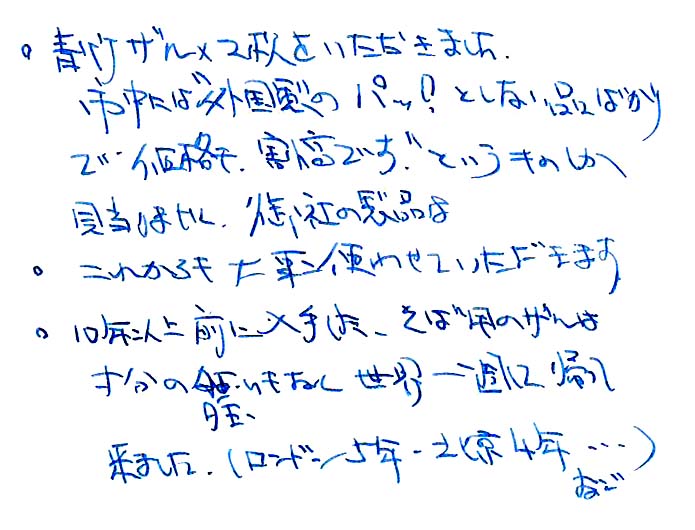 。青竹ザル×2枚をいただきました.
市中には外国製のパッ!としない品ばかり
で価格も割高です.というものしか
見当しません.御社の製品は
。これからも大事に使わせていただきます
。10年以上前に入手した、そば用のザルは
すがの狂いもなく世界一週して帰って
狂い
来ました.(ロンドン5年-北京4年…)
など